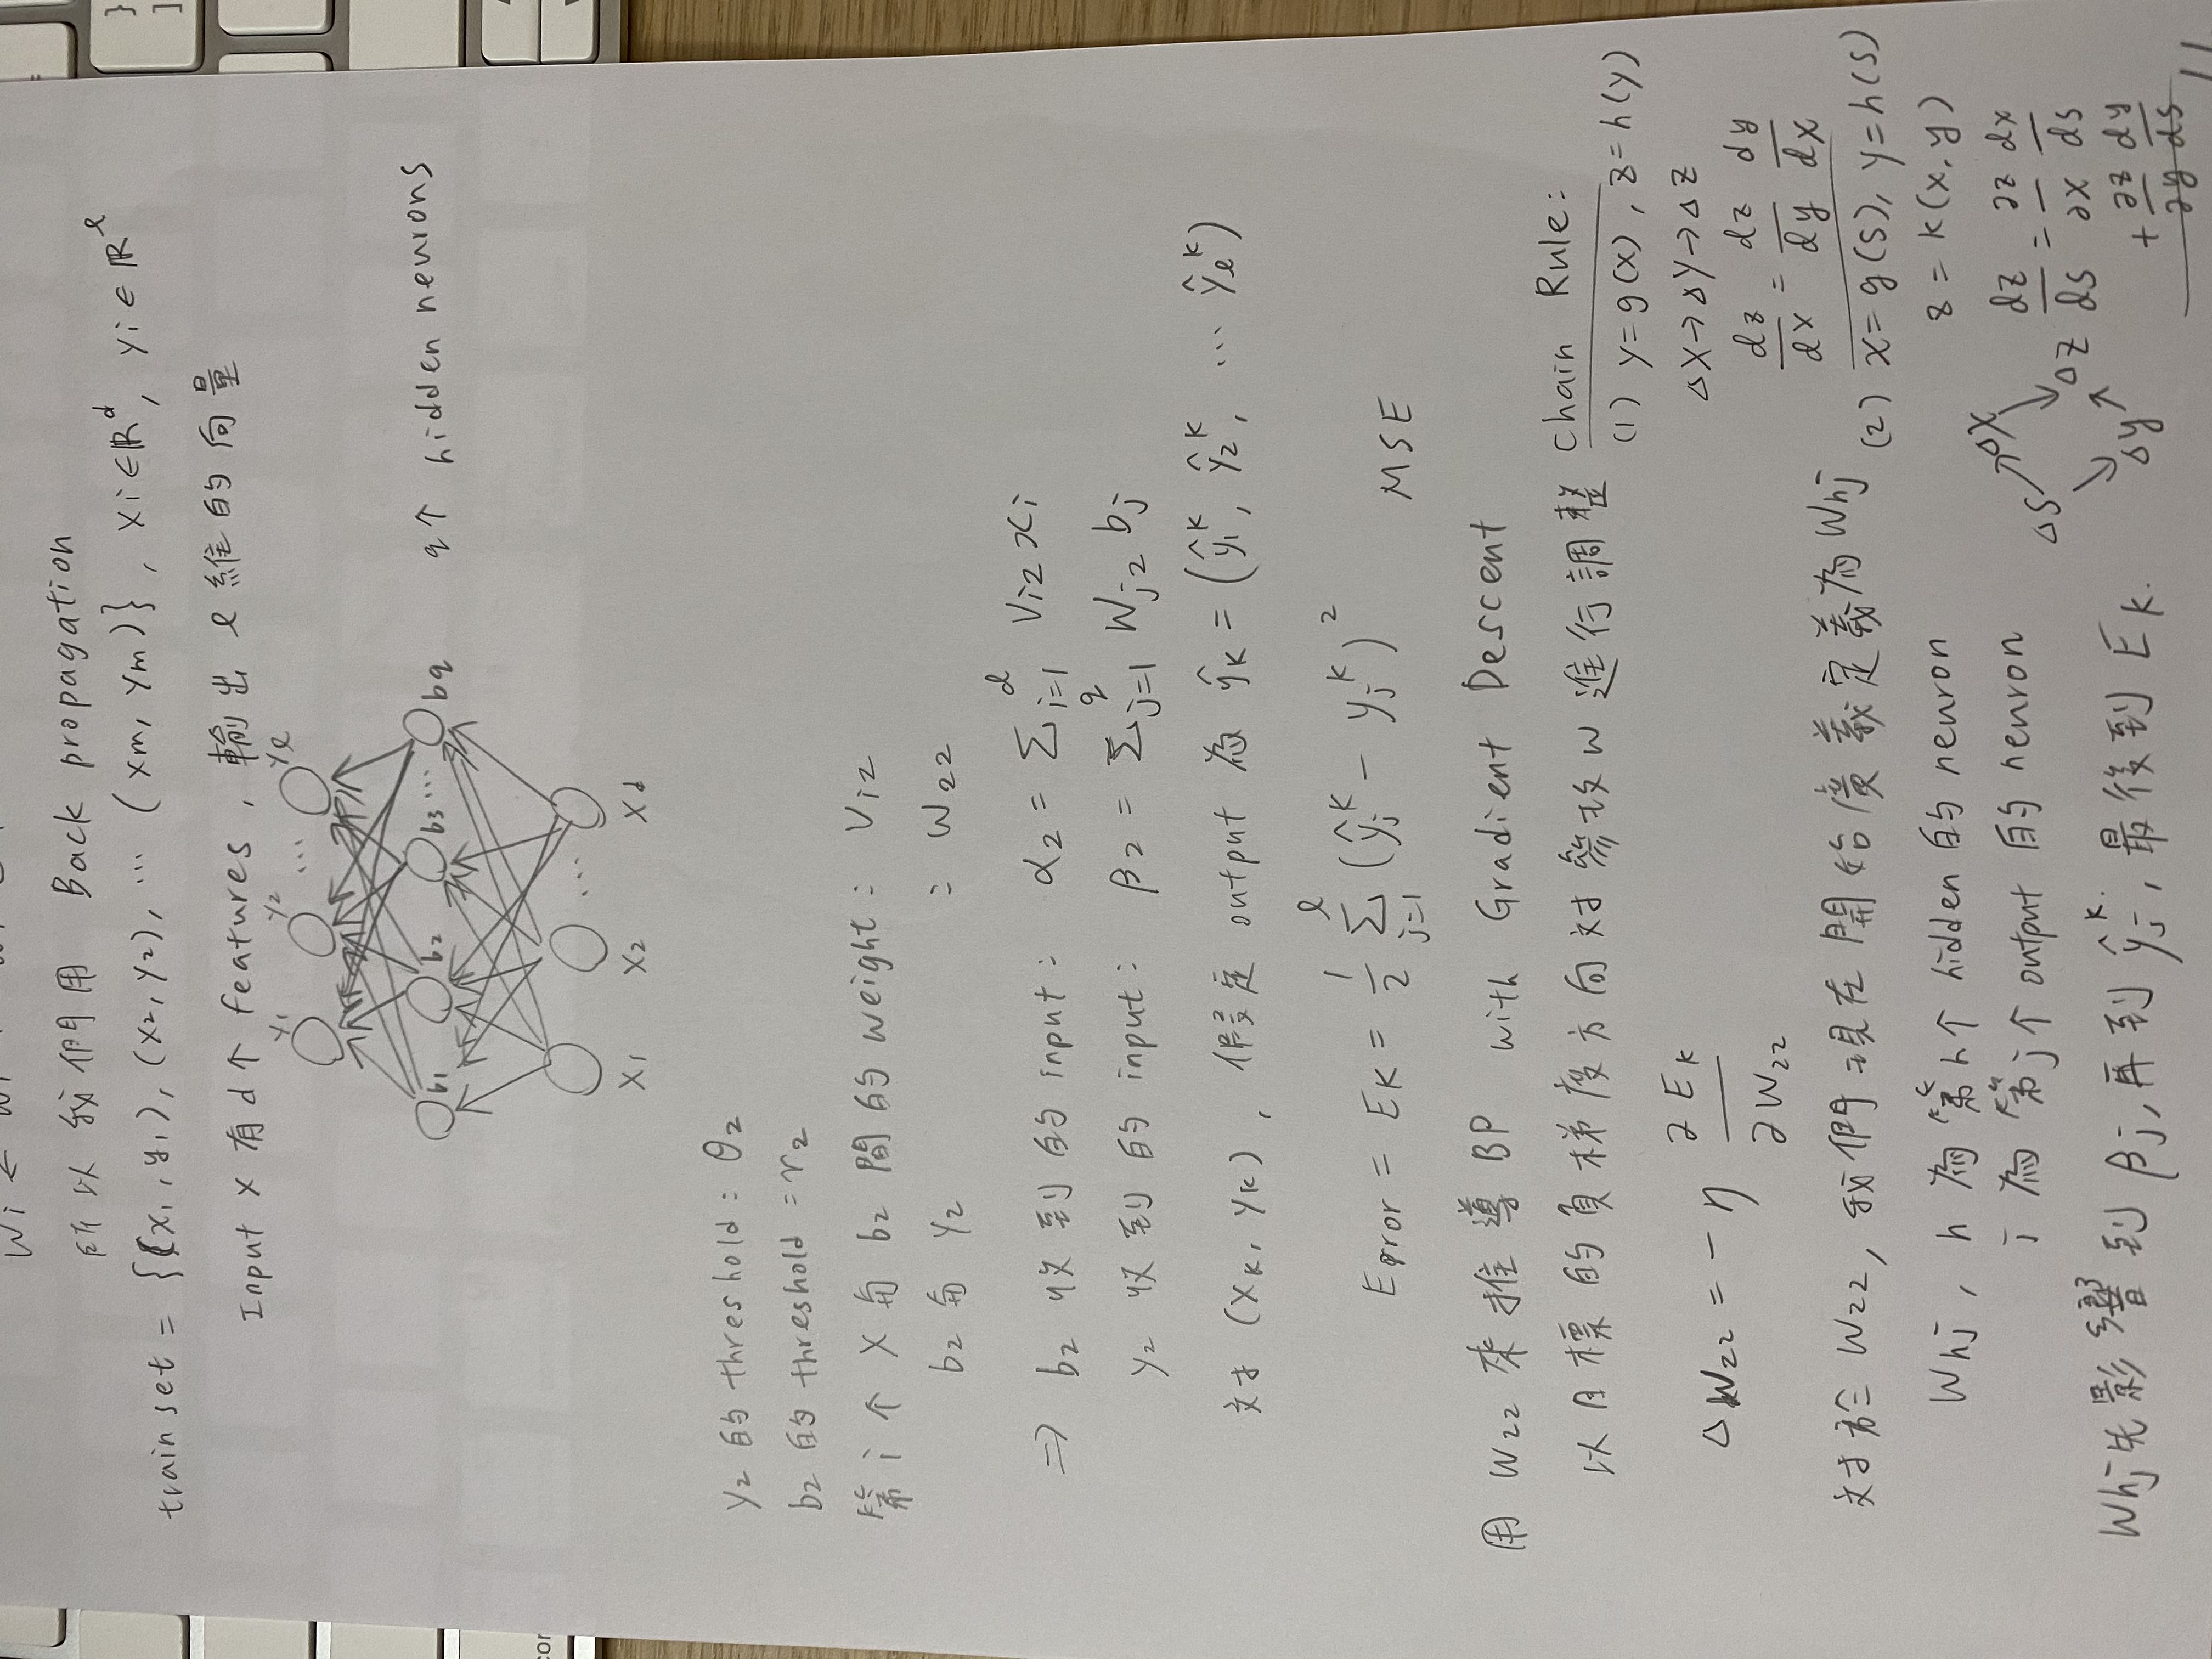 所以我們用 Back propagation
train set = {(x₁, y₁), (x₂, y₂), ... (xm, ym)}, xi ∈ ℝᵈ, yi ∈ ℝˡ
Input x 有 d个 features, 輸出 l 維的向量
y₁ y₂ ... yl
b₁ b₂ b₃ ... bq
q个 hidden neurons
...
x₁ x₂ xd
y₂ 的 threshold: θ₂
b₂ 的 threshold = r₂
第 i 个 X 与 b₂ 間的 weight: Vi₂
b₂ 与 y₂ : W₂₂
⇒ b₂ 收到的 input: α₂ = Σᵢ₌₁ᵈ Vi₂ xi
y₂ 收到的 input: β₂ = Σⱼ₌₁^q Wj₂ bj
对 (xk, yk), 假定 output 為 ŷk = (ŷ₁ᵏ, ŷ₂ᵏ, ... ŷlᵏ)
Error = Ek = 1/2 Σⱼ₌₁ˡ (ŷjᵏ - yjᵏ)² MSE
用 W₂₂ 來推導 BP with Gradient Descent
以目標的負梯度方向对參数 w 進行調整
ΔW₂₂ = -η ∂Ek/∂W₂₂
对於 W₂₂, 我們現在開始廣義定義為 Whj
Whj, h 為第h个 hidden 的 neuron
j 為第j个 output 的 neuron
Whj先影響到 βj, 再到 ŷjᵏ, 最後到 Ek.
Chain Rule:
(1) y=g(x), z=h(y)
Δx→Δy→Δz
dz/dx = dz/dy dy/dx
(2) x=g(s), y=h(s)
z = k(x,y)
Δs Δx Δy Δz
dz/ds = ∂z/∂x dx/ds
+ ∂z/∂y dy/ds